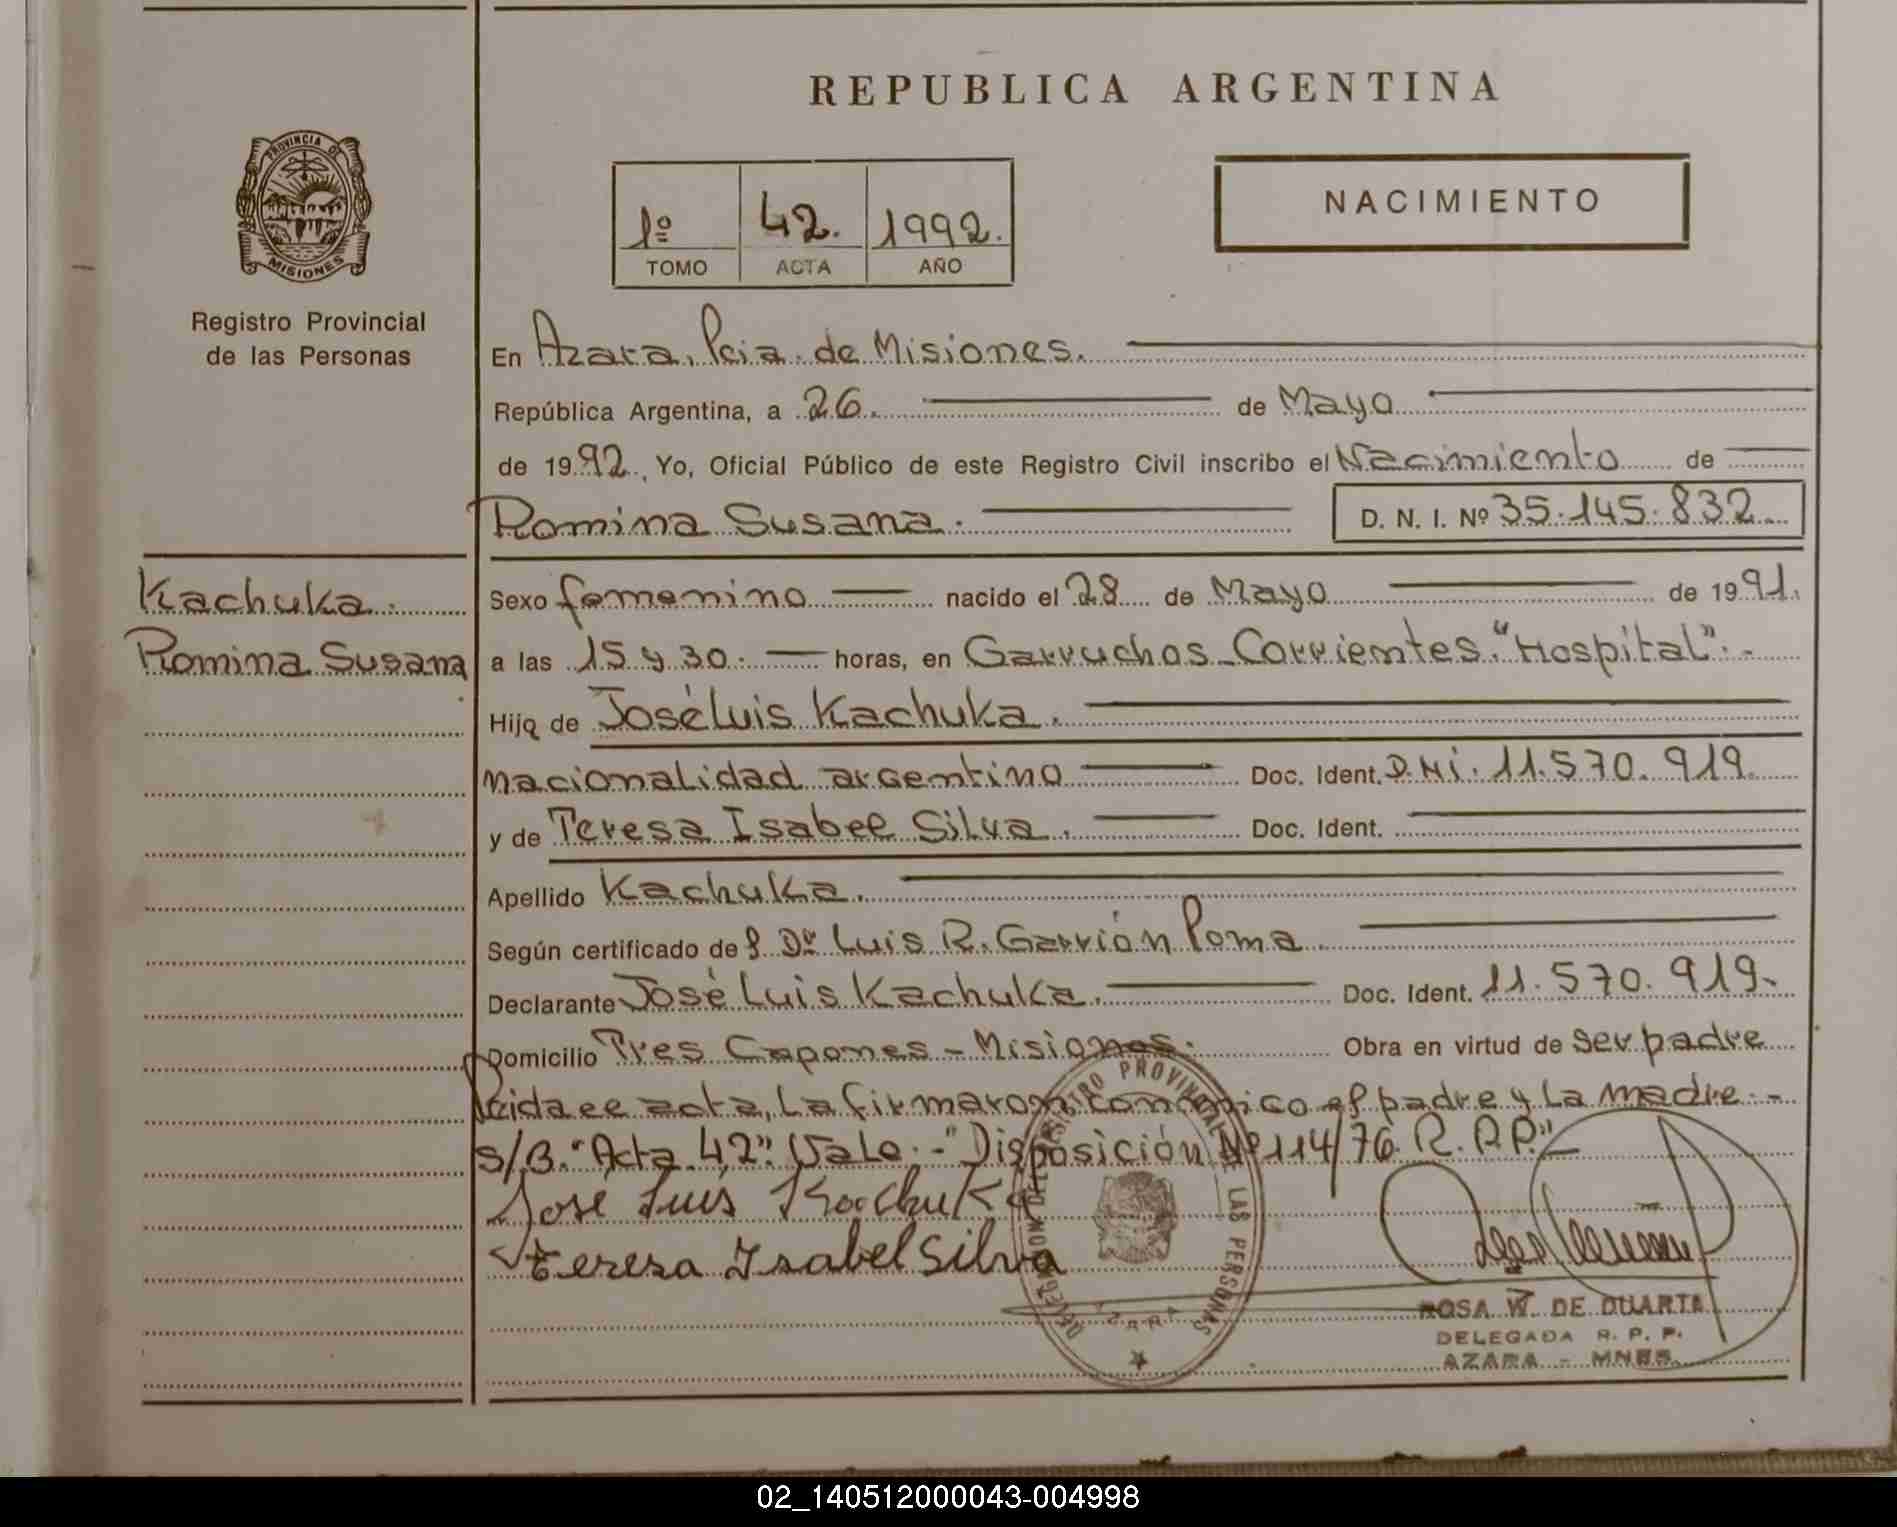 REPUBLICA ARGENTINA
PROVINCIA DE
MISIONES
Registro Provincial
de las Personas
1º 42. 1992.
TOMO ACTA AÑO
NACIMIENTO
En Azara, Pcia. de Misiones.
República Argentina, a 26. de Mayo
de 1992. Yo, Oficial Público de este Registro Civil inscribo el Nacimiento de
Romina Susana. D. N. I. Nº 35.145.832
Kachuka.
Romina Susana
Sexo femenino nacido el 28 de Mayo de 1991.
a las 15 y 30. horas, en Garruchos-Corrientes. "Hospital".-
Hijo de José Luis Kachuka.
nacionalidad argentino Doc. Ident. D.Ni. 11.570.919.
y de Teresa Isabel Silva. Doc. Ident.
Apellido Kachuka.
Según certificado de Dr Luis R. Garrión Poma
Declarante José Luis Kachuka. Doc. Ident. 11.570.919.
Domicilio Tres Capones - Misiones. Obra en virtud de ser padre
Leida el acta, la firmaron conmigo el padre y la madre.-
S/B. "Acta 42". Vale.- "Disposición Nº 114/76. R.P.P."
José Luis Kachuka
Teresa Isabel Silva
REGISTRO PROVINCIAL DE LAS PERSONAS
AZARA
ROSA W. DE DUARTE
DELEGADA R. P. P.
AZARA - MNES.
02_140512000043-004998